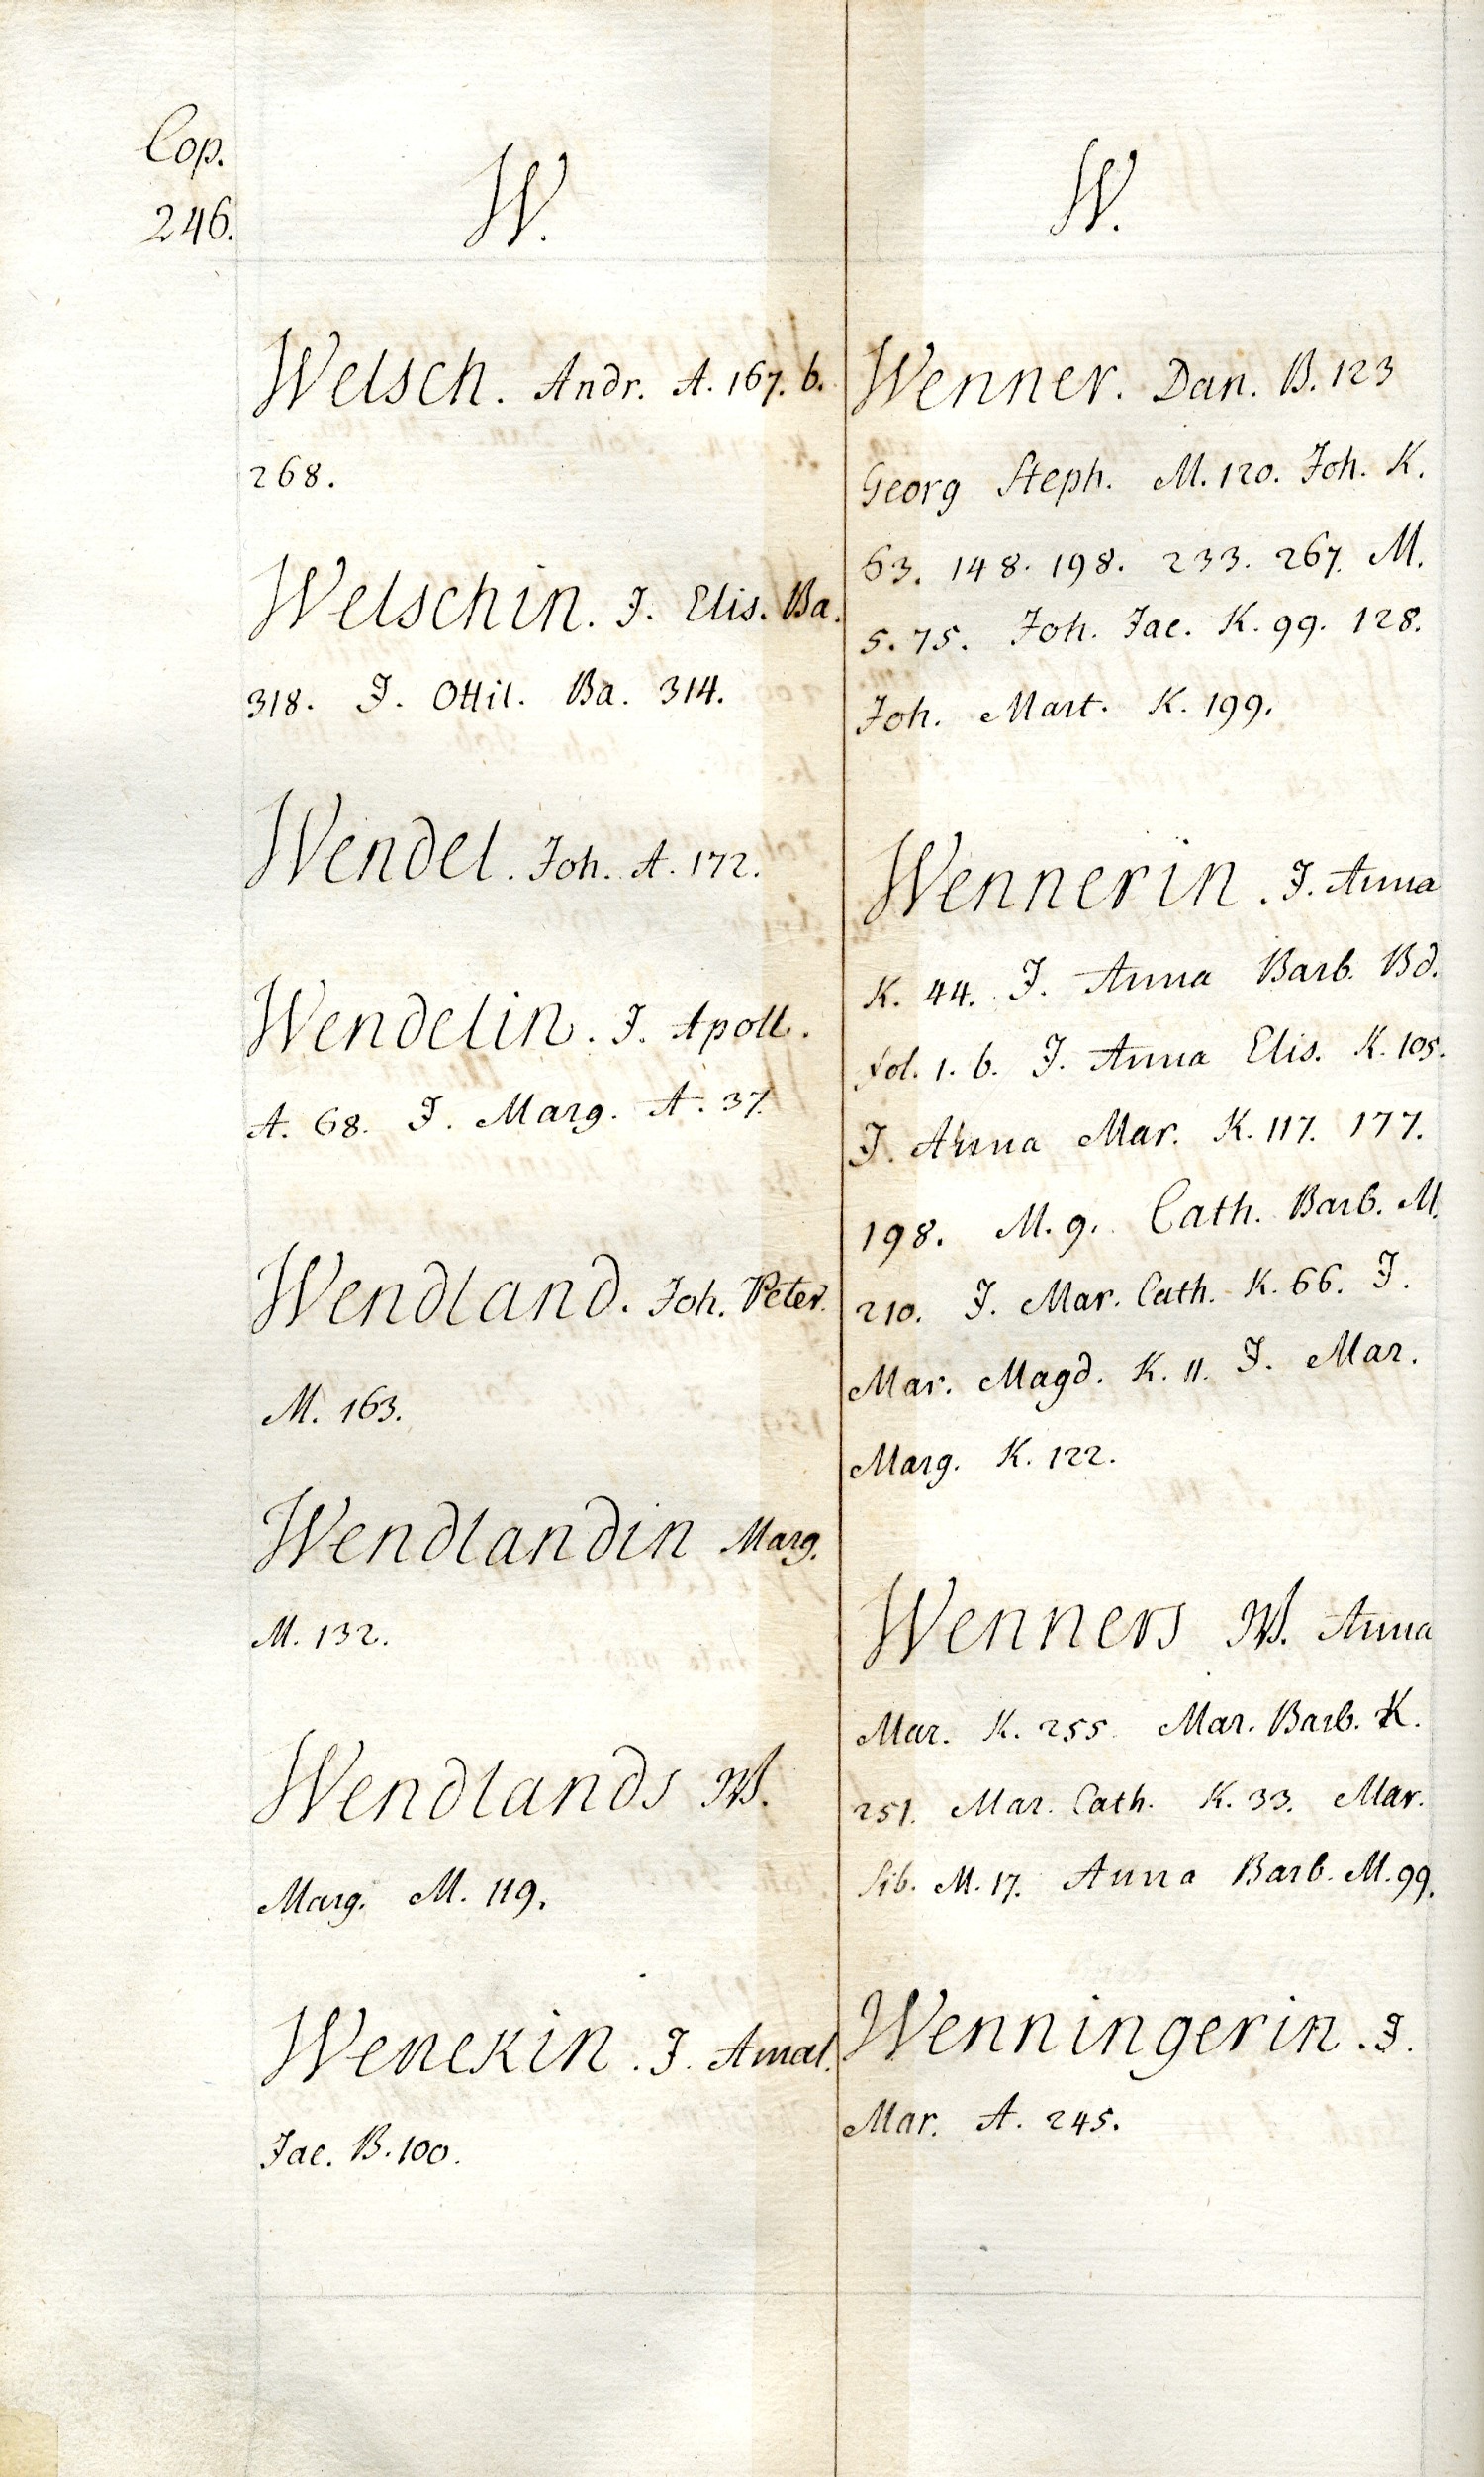 Cop.
246.
W.
Welsch. Andr. A. 167. b.
268.
Welschin. J. Elis. Ba.
318. J. Ottil. Ba. 314.
Wendel. Joh. A. 172.
Wendelin. J. Apoll.
A. 68. J. Marg. A. 37.
Wendland. Joh. Peter.
M. 163.
Wendlandin Marg.
M. 132.
Wendlands W.
Marg. M. 119.
Wenekin. J. Amal.
Jac. B. 100.
W.
Wenner. Dan. B. 123
Georg Steph. M. 120. Joh. K.
63. 148. 198. 233. 267. M.
5. 75. Joh. Jac. K. 99. 128.
Joh. Mart. K. 199.
Wennerin. J. Anna
K. 44. J. Anna Barb. Bd.
fol. 1. b. J. Anna Elis. K. 105.
J. Anna Mar. K. 117. 177.
198. M. 9. Cath. Barb. M.
210. J. Mar. Cath. K. 66. J.
Mar. Magd. K. 11. J. Mar.
Marg. K. 122.
Wenners W. Anna
Mar. K. 255. Mar. Barb. K.
251. Mar. Cath. K. 33. Mar.
Sib. M. 17. Anna Barb. M. 99.
Wenningerin. J.
Mar. A. 245.